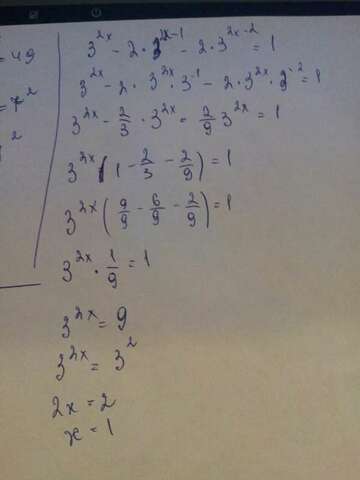 = 49
= 7^2
2
3^{2x} - 2 · 3^{2x-1} - 2 · 3^{2x-2} = 1
3^{2x} - 2 · 3^{2x} · 3^{-1} - 2 · 3^{2x} · 3^{-2} = 1
3^{2x} - \frac{2}{3} · 3^{2x} - \frac{2}{9} 3^{2x} = 1
3^{2x} (1 - \frac{2}{3} - \frac{2}{9}) = 1
3^{2x} (\frac{9}{9} - \frac{6}{9} - \frac{2}{9}) = 1
3^{2x} · \frac{1}{9} = 1
3^{2x} = 9
3^{2x} = 3^2
2x = 2
x = 1